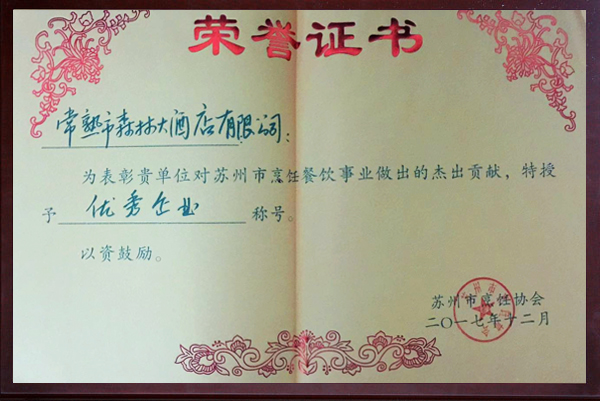 荣誉证书
常熟市森林大酒店有限公司：
为表彰贵单位对苏州市烹饪餐饮事业做出的杰出贡献，特授
予 优秀企业 称号。
以资鼓励。
苏州市烹饪协会
二〇一七年十二月